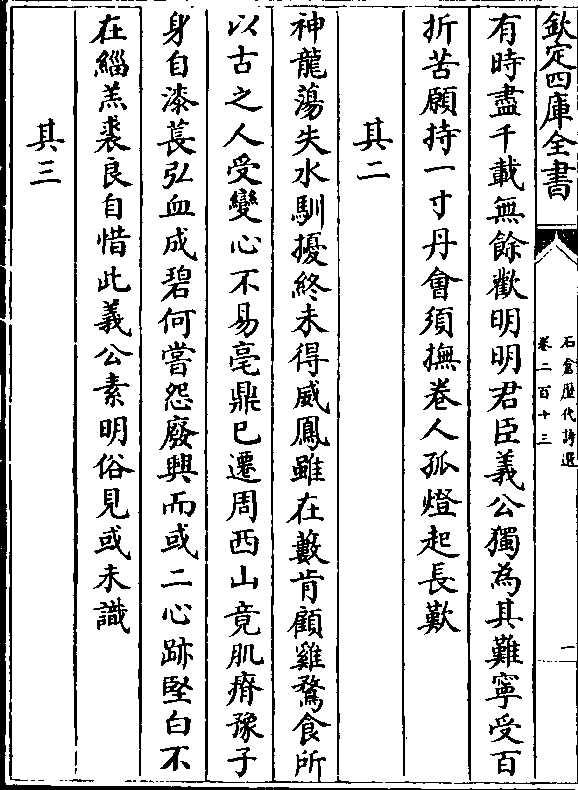 欽定四庫全書
石倉歷代詩選
卷二百十三
一
有時盡千載無餘歡明明君臣義公獨為其難寧受百
折苦願持一寸丹會須撫卷人孤燈起長歎
其二
神龍蕩失水馴擾終未得威鳳雖在藪肯顧雞鶩食所
以古之人受變心不易亳鼎已遷周西山竟肌瘠豫子
身自漆萇弘血成碧何嘗怨廢興而或二心跡堅白不
在緇羔裘良自惜此義公素明俗見或未識
其三